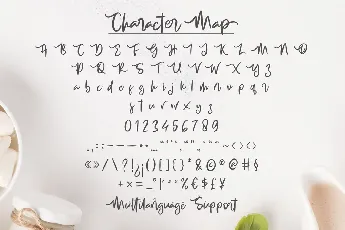 Character Map
A B C D E F G H I J K L M N O
P Q R S T U V W X Y Z
a b c d e f g h i j k l m n o p q r
s t u v w x y z
0 1 2 3 4 5 6 7 8 9
« » / \ ? ! ¿ ¡ ( ) [ ] { } * & © ® @ # §
+ × = _ ° | ¦ % € $ £ ¥
Multilanguage Support